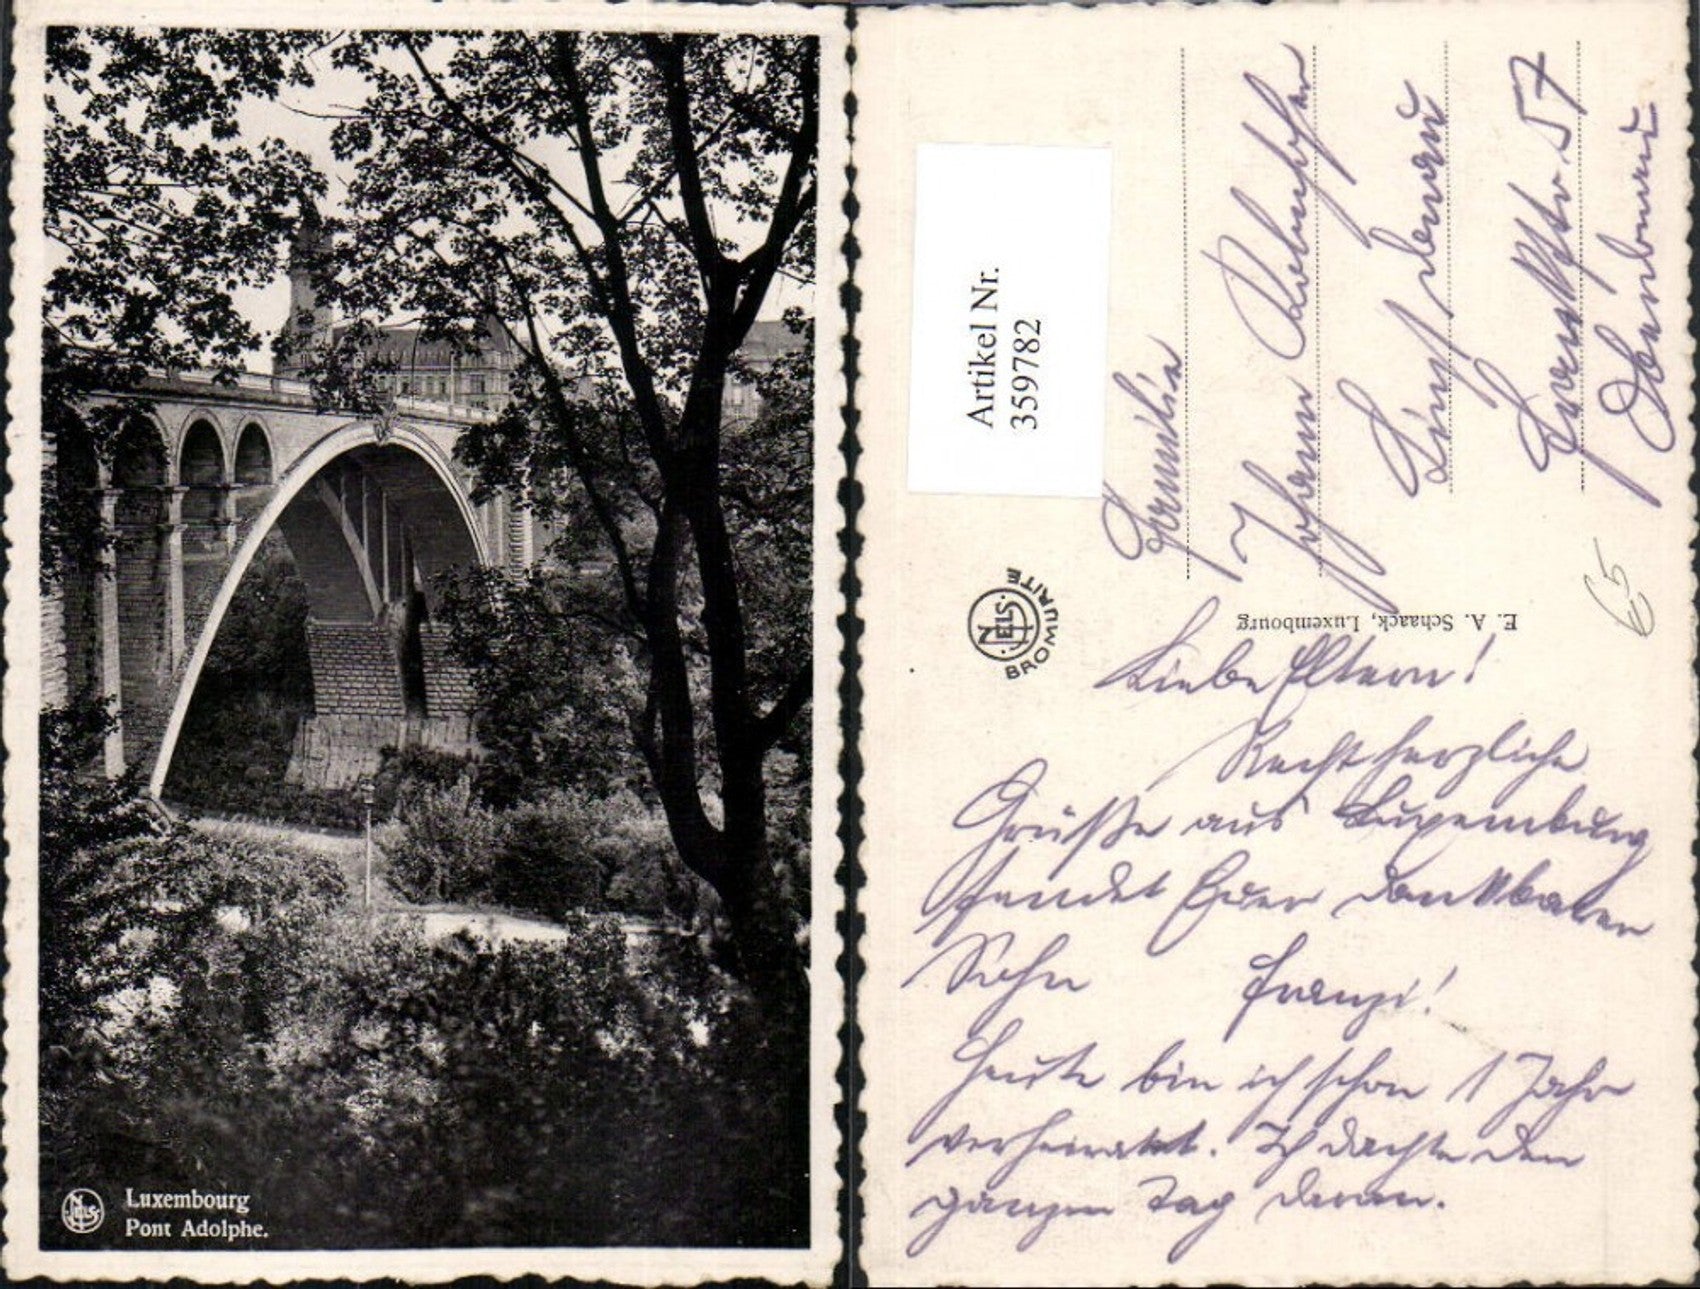 Luxembourg
Pont Adolphe.
NELS
Artikel Nr.
359782
NELS
BROMURITE
E. A. Schaack, Luxembourg
Familie
Johann
Linz Donau
57
€5
Liebe Eltern!
Recht herzliche
Grüße aus Luxemburg
sendet Euer dankbarer
Sohn Franzi!
Heute bin ich schon 1 Jahr
verheiratet. Ich dachte den
ganzen Tag daran.